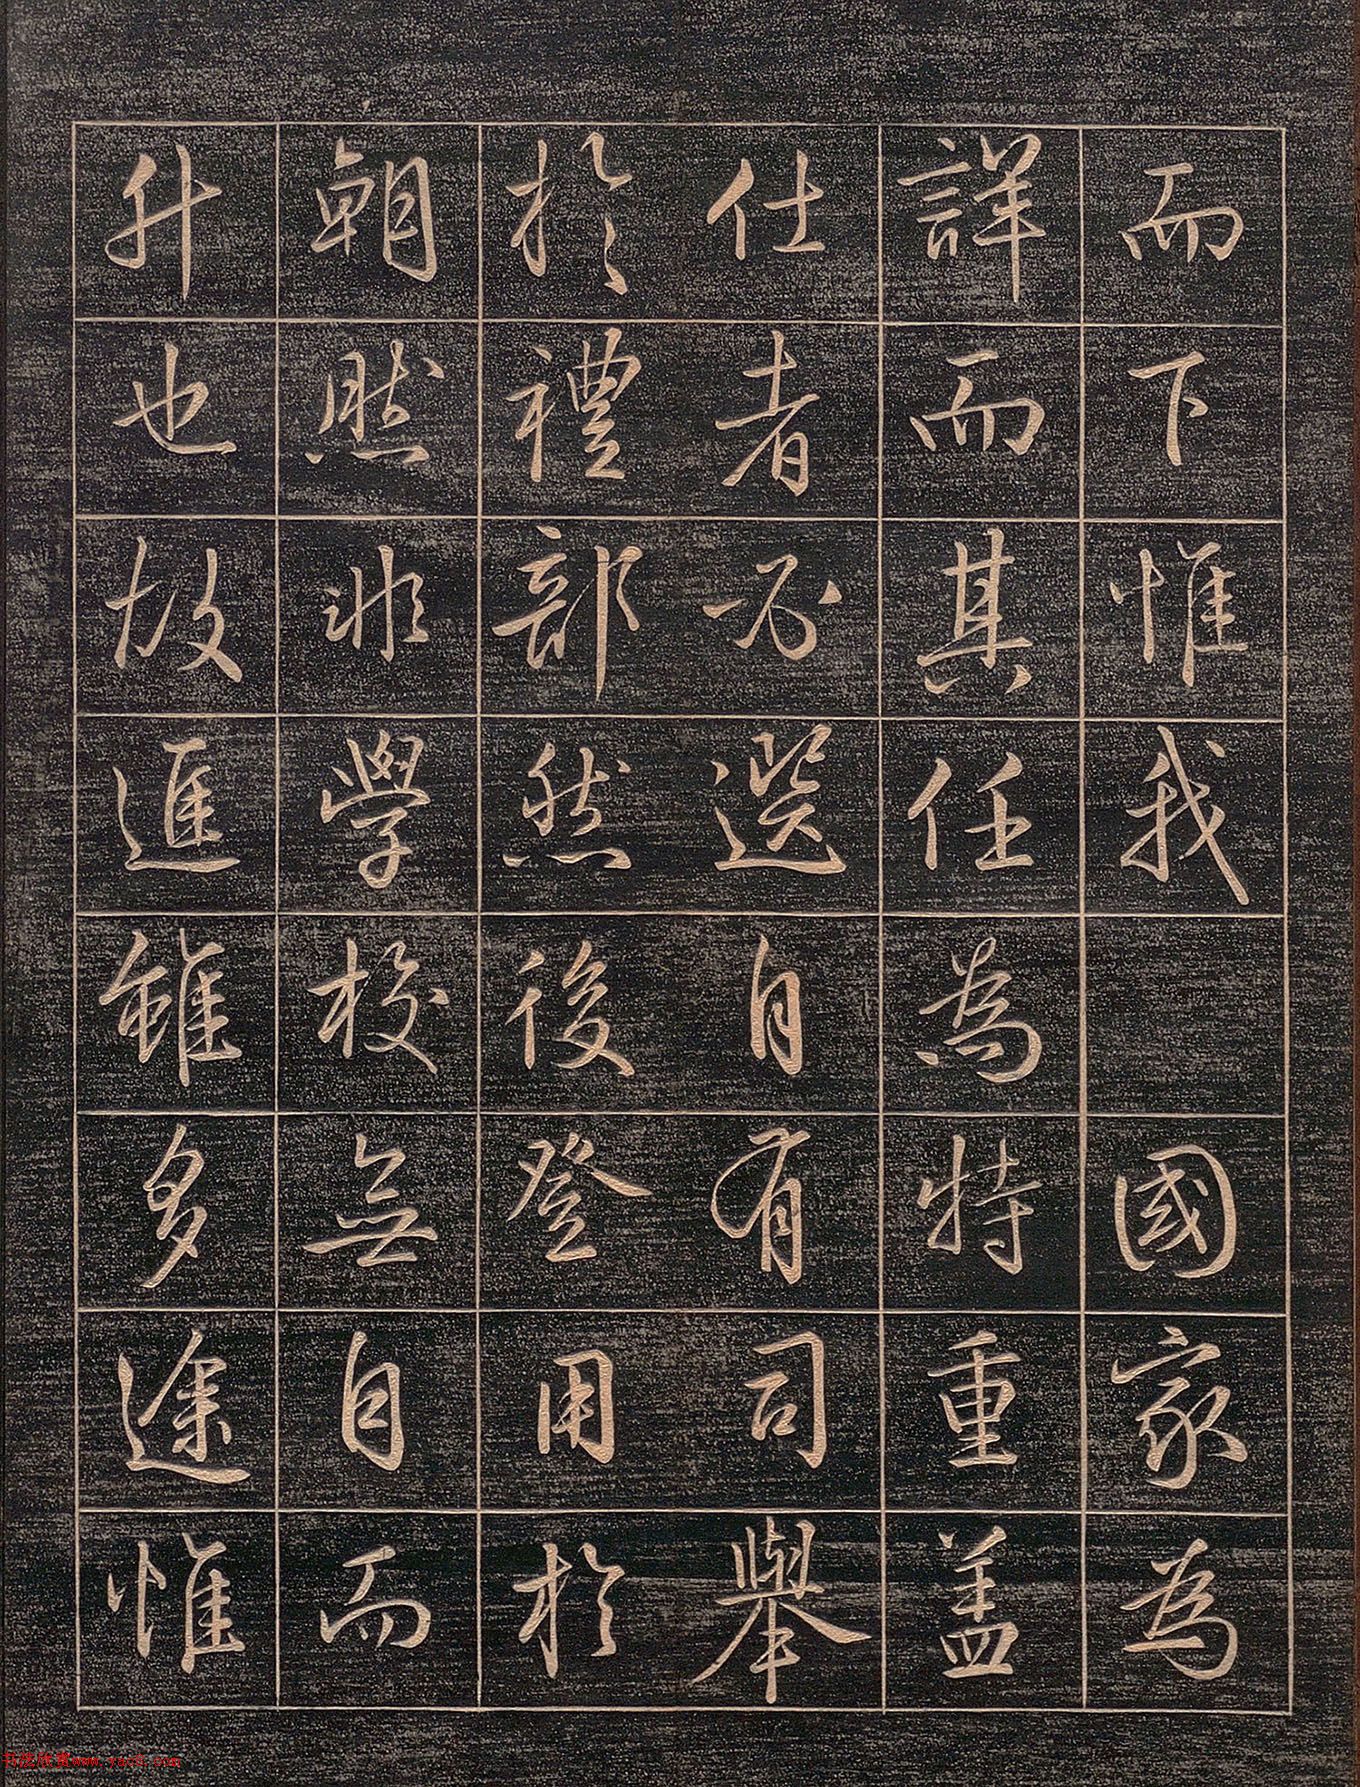 而下惟我國家為
詳而其任為特重蓋
仕者不選自有司舉
於禮部然後登用於
朝然非學校無自而
升也故進雖多途惟
书法欣赏www.yac8.com